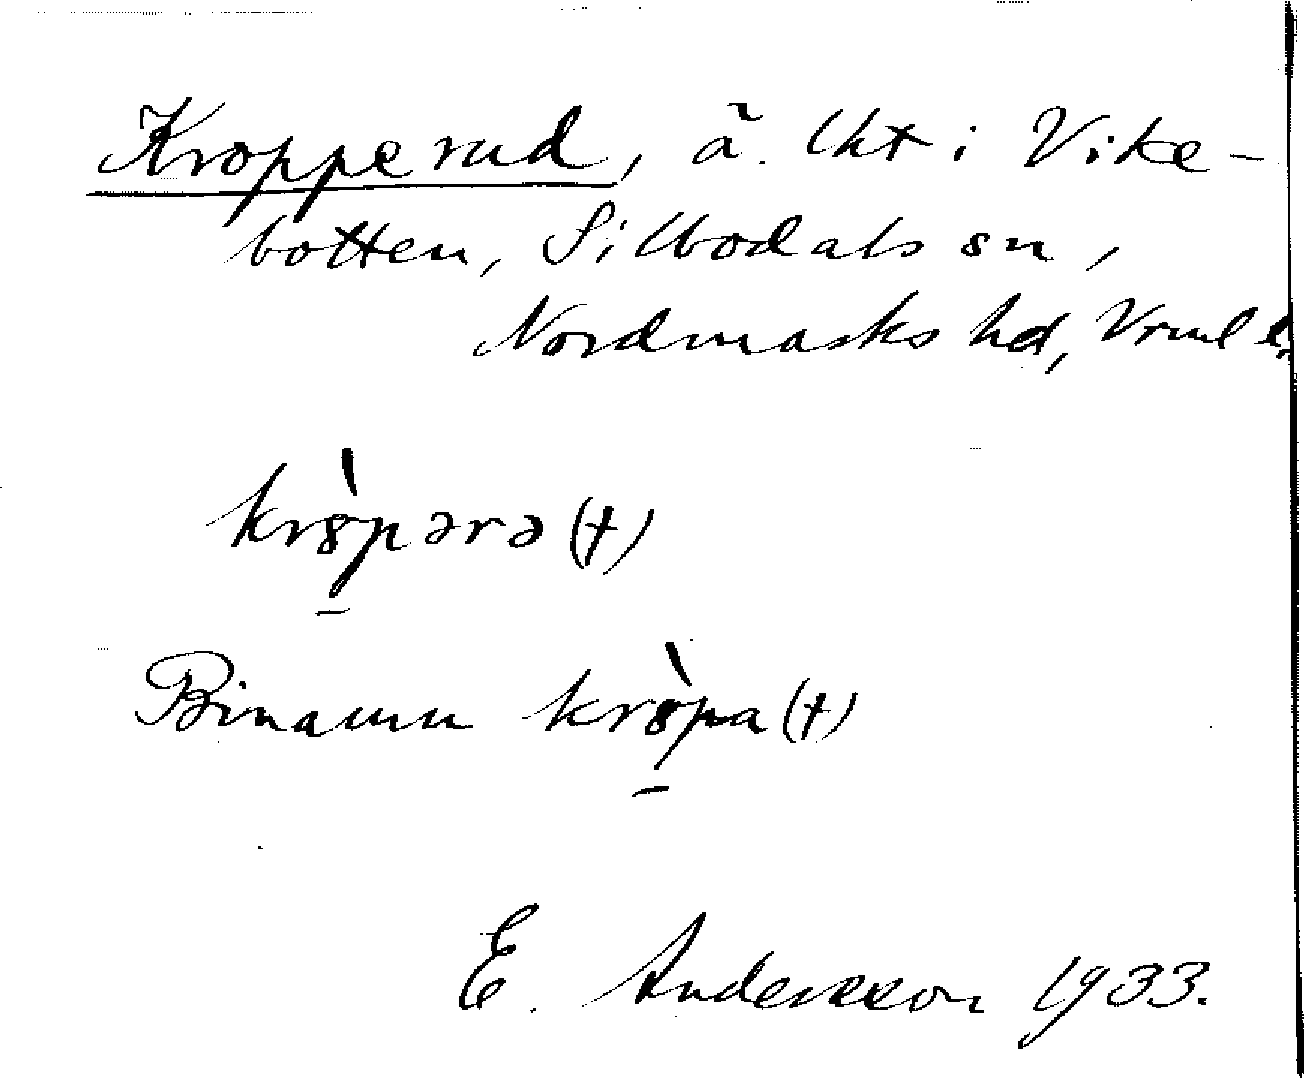 Kropperud, ä. lht i Vike-
botten, Silbodals sn,
Nordmarks hd, Vrml l.
krȣ̀pərə (†)
Binamn krȣ̀pa (†)
E. Andersson 1933.